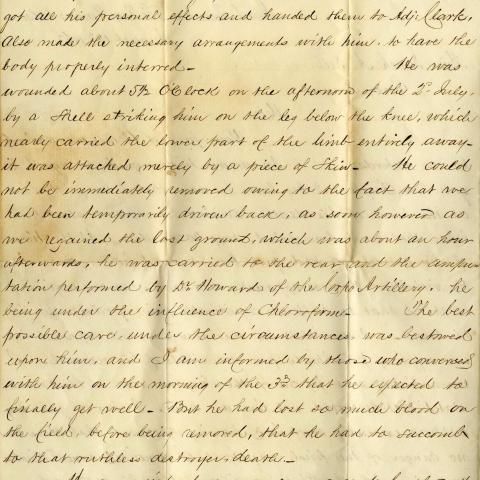 got all his personal effects and handed them to Adj: Clark.
Also made the necessary arrangements with him, to have the
body properly interred — He was
wounded about 5½ O'Clock on the afternoon of the 2d July,
by a Shell striking him on the leg below the knee, which
nearly carried the lower part of the limb entirely away —
it was attached merely by a piece of Skin — He could
not be immediately removed owing to the fact that we
had been temporarily driven back, as soon however as
we regained the lost ground, which was about an hour
afterwards, he was carried to the rear and the ampu-
tation performed by Dr Howard of the Corps Artillery, he
being under the influence of Chloroform — The best
possible care, under the circumstances, was bestowed
upon him, and I am informed by those who conversed
with him on the morning of the 3d that he expected to
finally get well — But he had lost so much blood on
the field, before being removed, that he had to succomb
to that ruthless destroyer, death. —